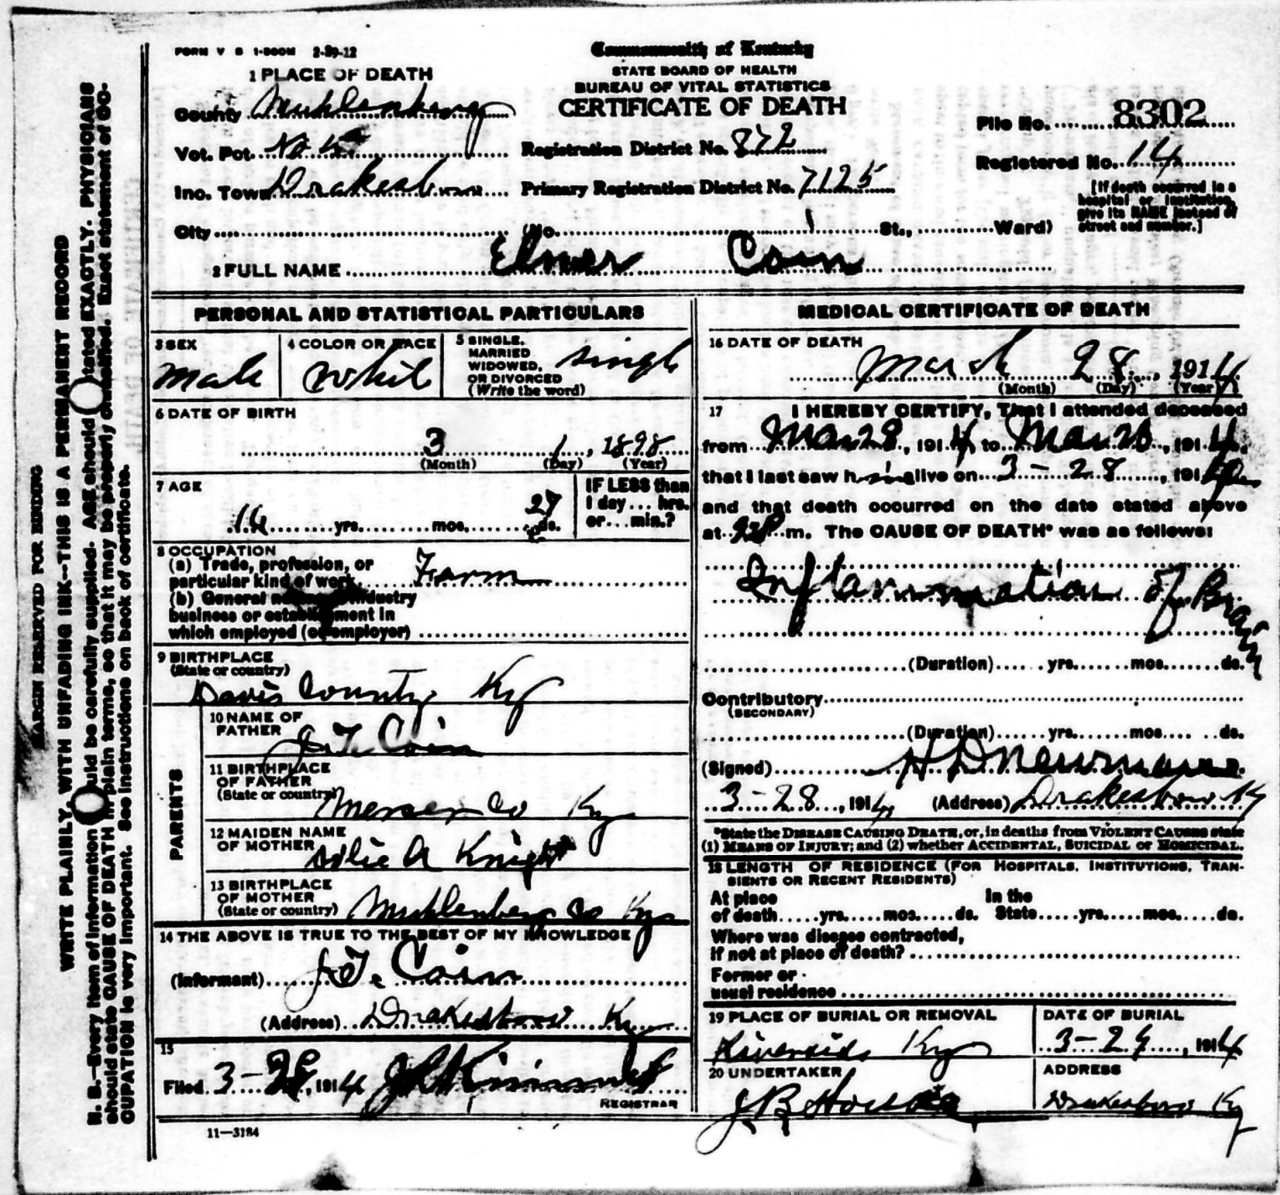 FORM V S 1-500M 2-29-12
Commonwealth of Kentucky
STATE BOARD OF HEALTH
BUREAU OF VITAL STATISTICS
CERTIFICATE OF DEATH
1 PLACE OF DEATH
County Muhlenberg
Vot. Pct.
Inc. Town Drakesboro
City (No. St., Ward)
Registration District No. 872
Primary Registration District No. 7125
File No. 8302
Registered No. 14
[If death occurred in a
hospital or institution,
give its NAME instead of
street and number.]
2 FULL NAME Elmer Cain
PERSONAL AND STATISTICAL PARTICULARS
3 SEX
Male
4 COLOR OR RACE
White
5 SINGLE,
MARRIED
WIDOWED,
OR DIVORCED
(Write the word)
Single
6 DATE OF BIRTH
3 1, 1898
(Month) (Day) (Year)
7 AGE
16 yrs. mos. 27 ds.
IF LESS than
1 day... hrs.
or... min.?
8 OCCUPATION
(a) Trade, profession, or
particular kind of work Farm
(b) General nature of industry
business or establishment in
which employed (or employer)
9 BIRTHPLACE
(State or country)
Davis County Ky
PARENTS
10 NAME OF
FATHER
J. T. Cain
11 BIRTHPLACE
OF FATHER
(State or country)
Mercer Co Ky
12 MAIDEN NAME
OF MOTHER
A Knight
13 BIRTHPLACE
OF MOTHER
(State or country) Muhlenberg Co Ky
14 THE ABOVE IS TRUE TO THE BEST OF MY KNOWLEDGE
(Informant) J. T. Cain
(Address) Drakesboro Ky
15
Filed 3-28, 1914
REGISTRAR
11—3184
MEDICAL CERTIFICATE OF DEATH
16 DATE OF DEATH
March 28, 1914
(Month) (Day) (Year)
17 I HEREBY CERTIFY, That I attended deceased
from Mar 28, 1914 to Mar, 1914
that I last saw him alive on 3-28, 191
and that death occurred on the date stated above
at m. The CAUSE OF DEATH* was as follows:
Inflammation of Brain
(Duration) yrs. mos. ds.
Contributory
(SECONDARY)
(Duration) yrs. mos. ds.
(Signed) H D Newman
3-28, 1914 (Address) Drakesboro Ky
*State the DISEASE CAUSING DEATH, or, in deaths from VIOLENT CAUSES state
(1) MEANS OF INJURY; and (2) whether ACCIDENTAL, SUICIDAL or HOMICIDAL.
18 LENGTH OF RESIDENCE (FOR HOSPITALS, INSTITUTIONS, TRAN-
SIENTS OR RECENT RESIDENTS)
At place In the
of death yrs. mos. ds. State yrs. mos. ds.
Where was disease contracted,
if not at place of death?
Former or
usual residence
19 PLACE OF BURIAL OR REMOVAL
Riverside Ky
DATE OF BURIAL
3-29, 1914
20 UNDERTAKER
J B
ADDRESS
Drakesboro Ky
MARGIN RESERVED FOR BINDING
WRITE PLAINLY, WITH UNFADING INK--THIS IS A PERMANENT RECORD
N. B.—Every item of information should be carefully supplied. AGE should be stated EXACTLY. PHYSICIANS
should state CAUSE OF DEATH in plain terms, so that it may be properly classified. Exact statement of OC-
CUPATION is very important. See instructions on back of certificate.